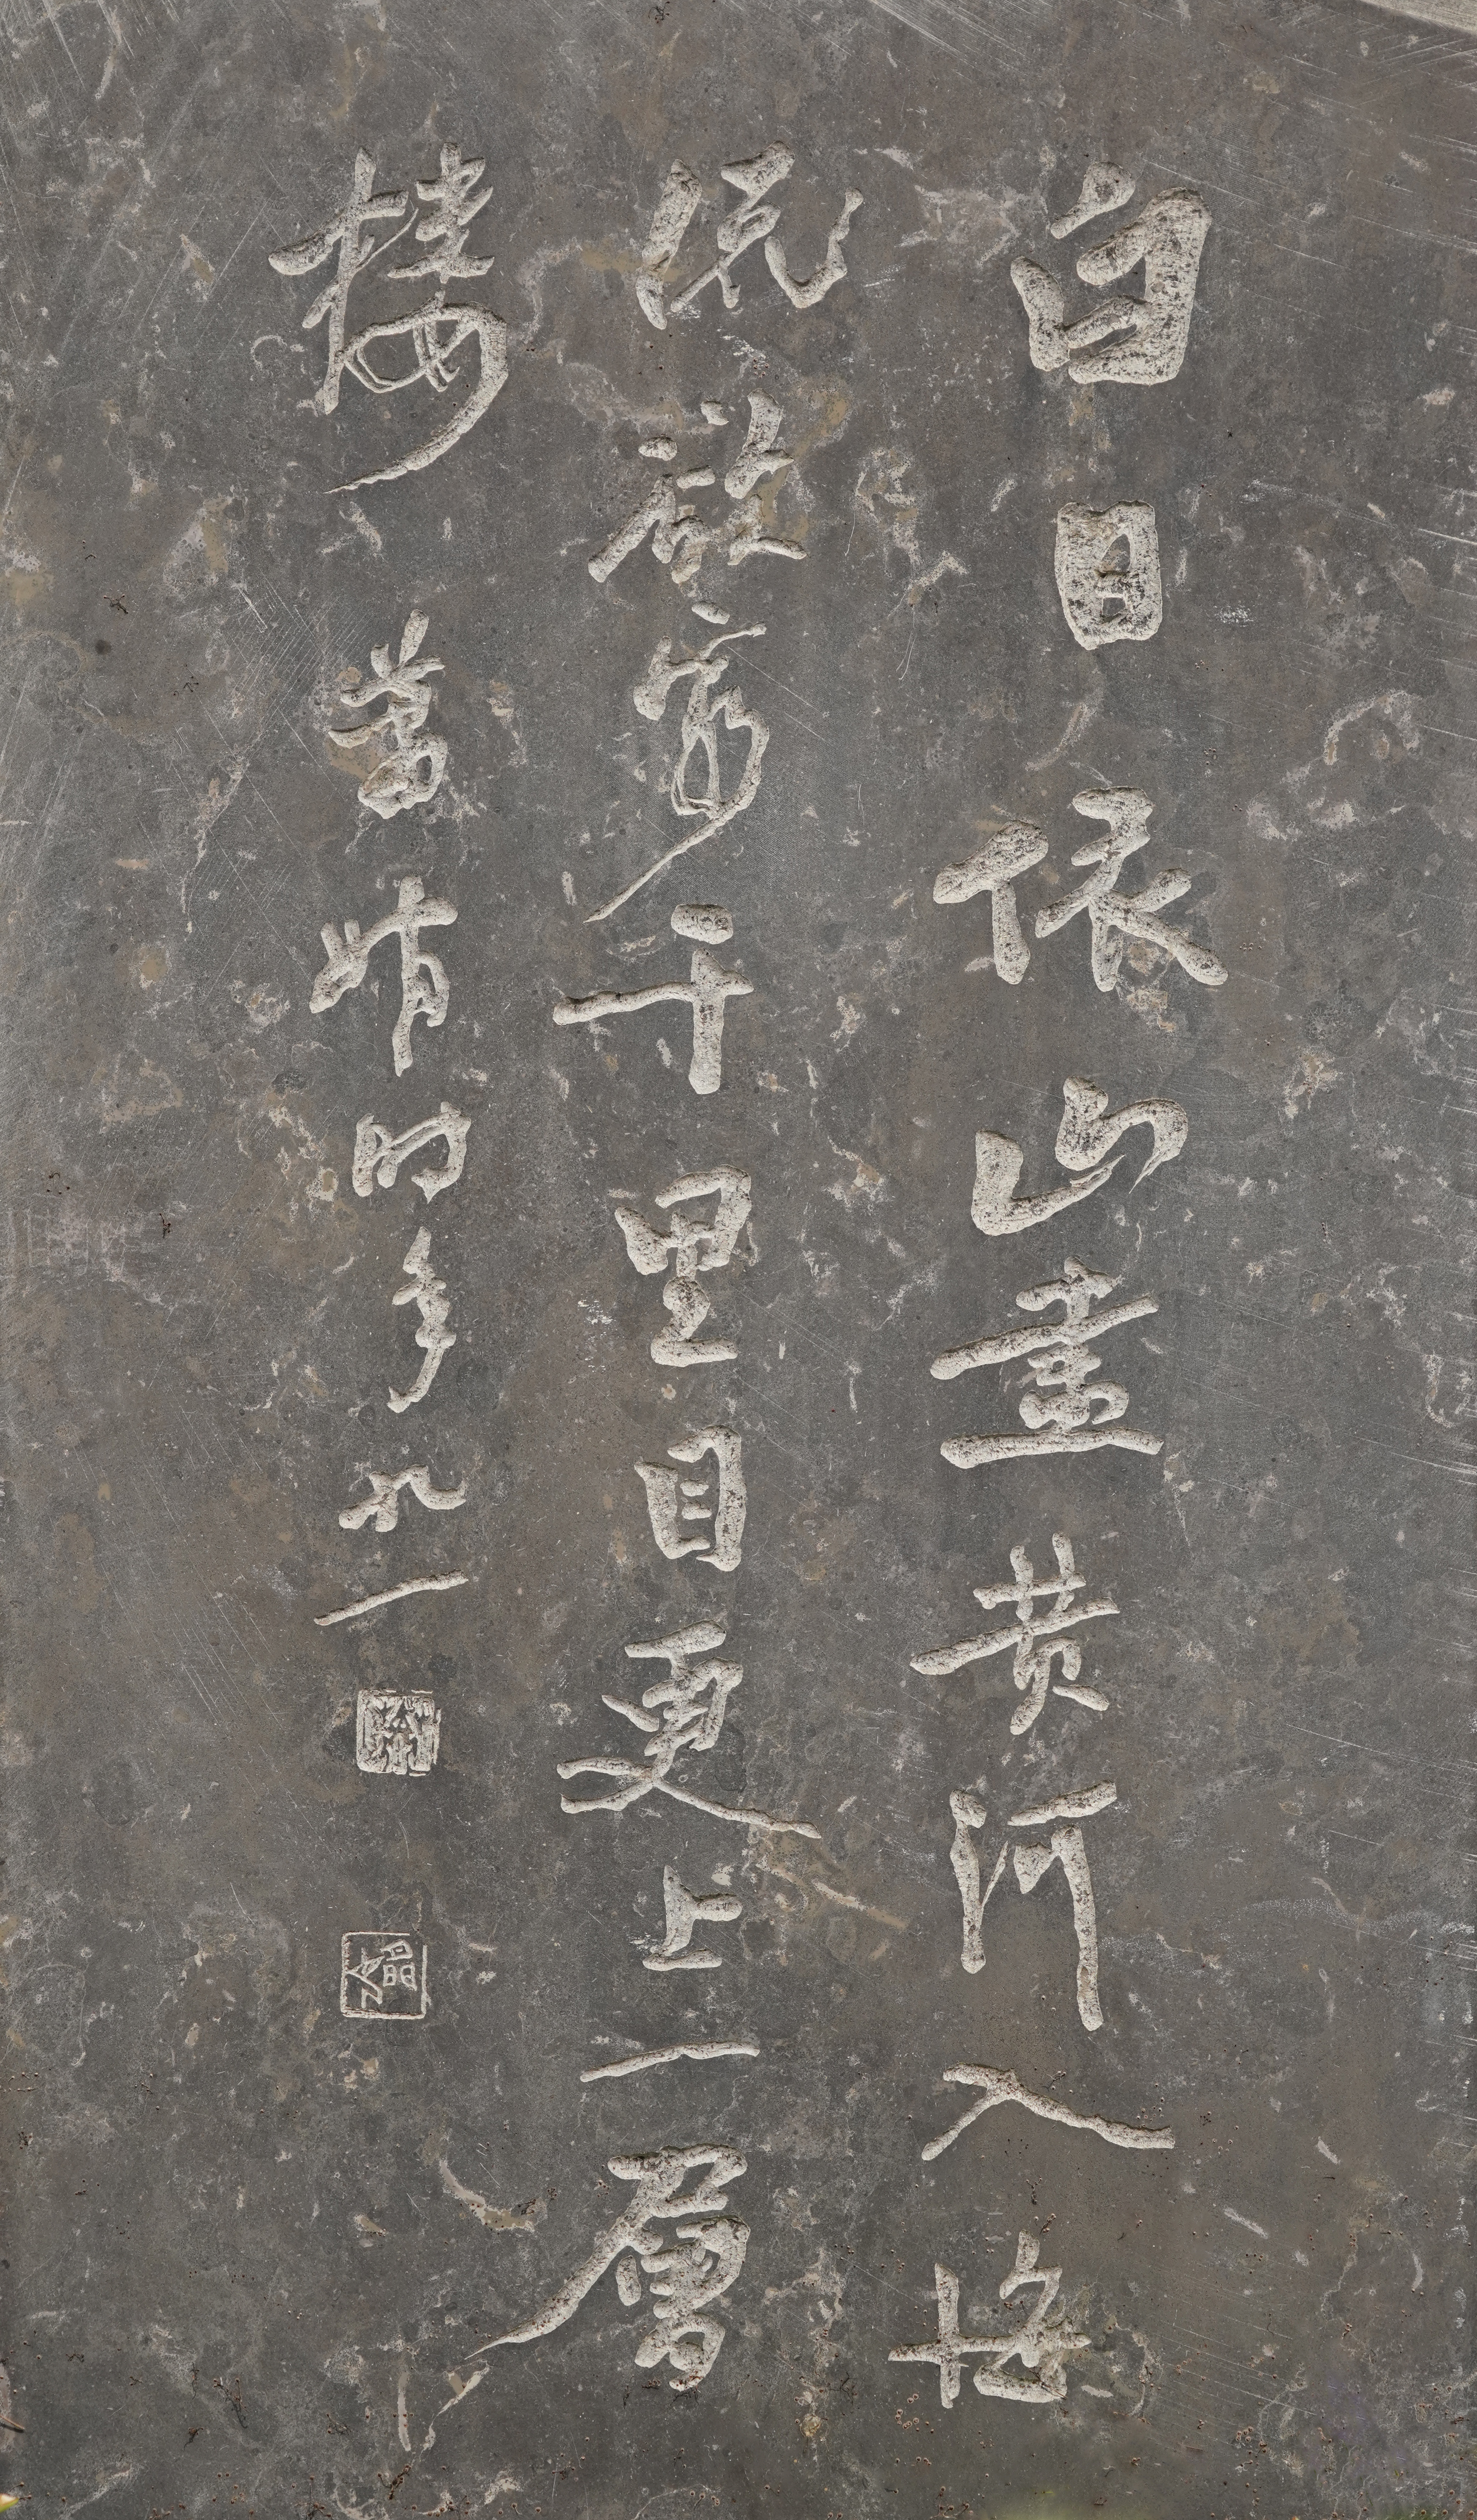 白日依山盡黄河入海
流欲窮千里目更上一層
樓 萧娴時年九一